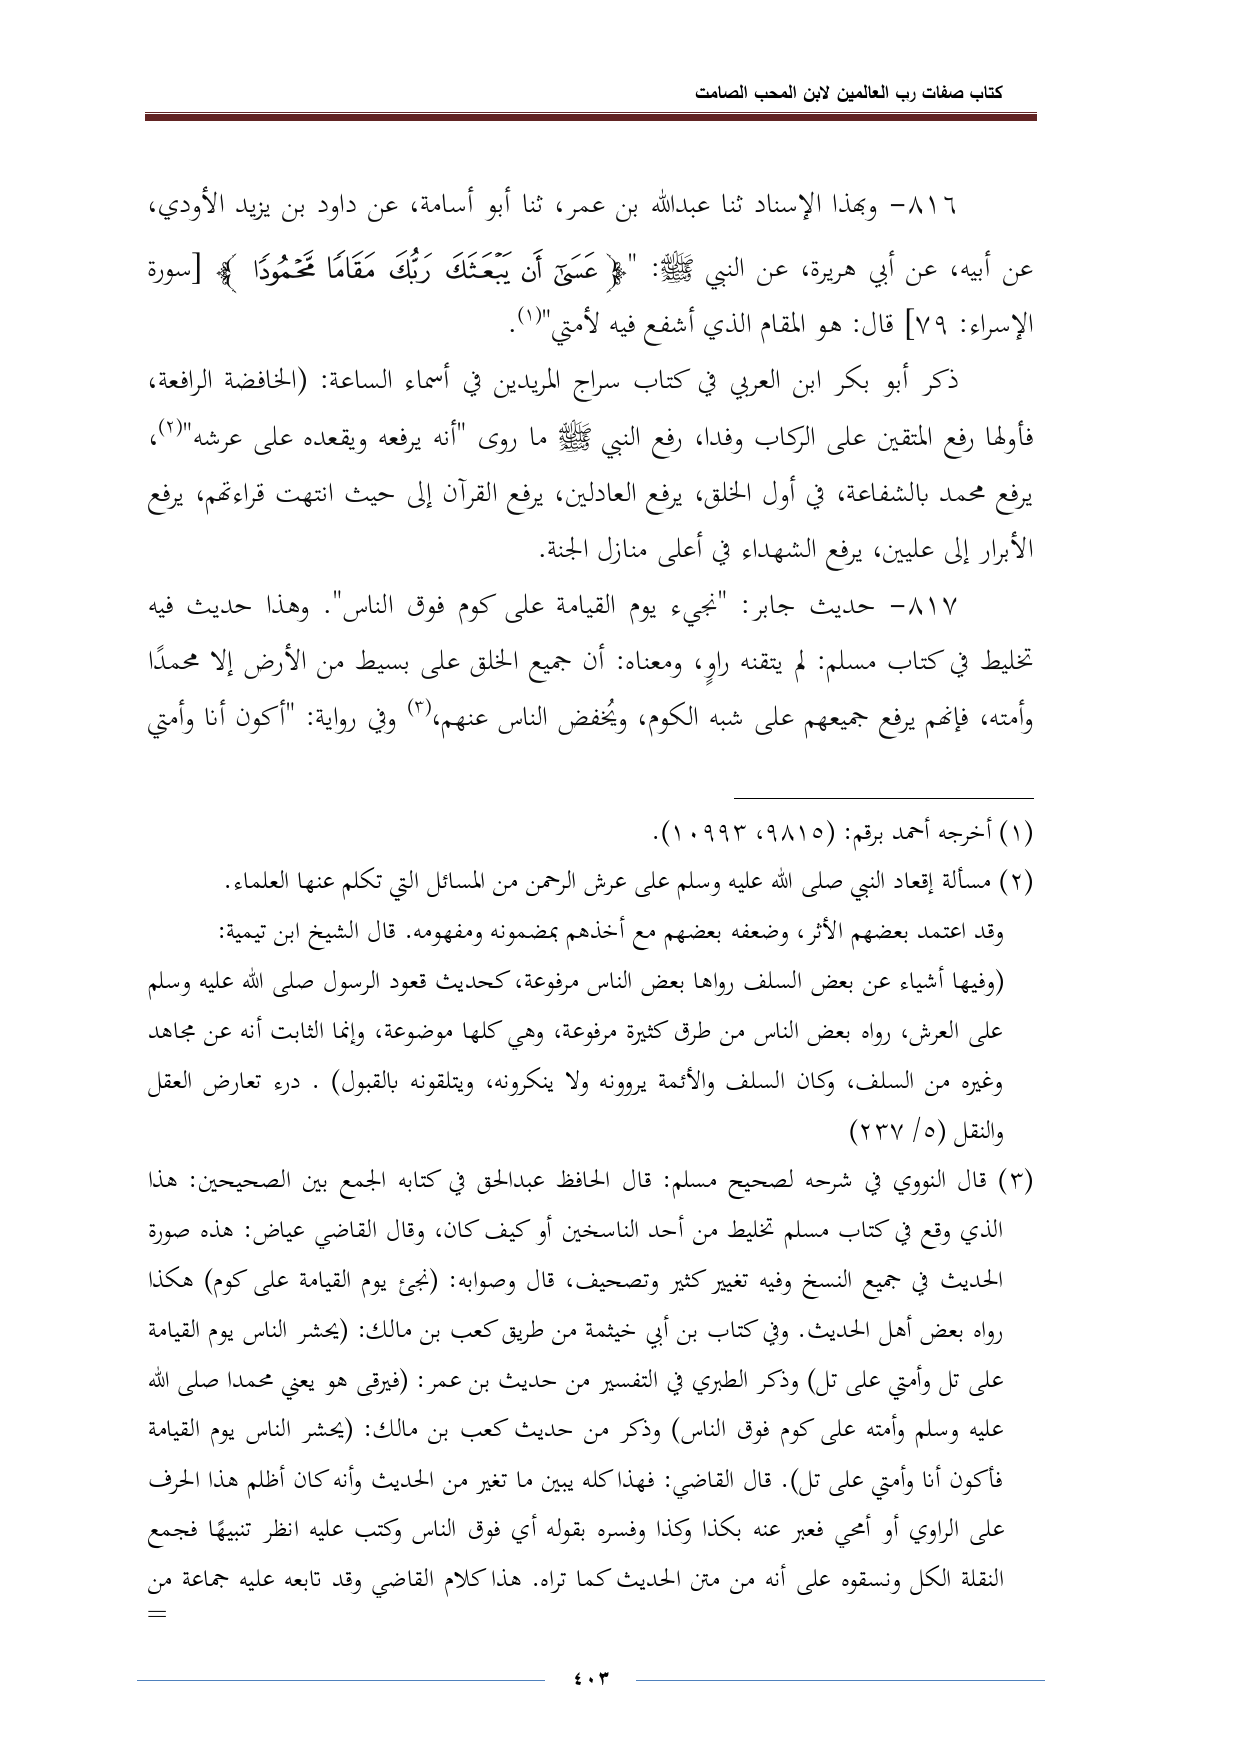 كتاب صفات رب العالمين لابن المحب الصامت
٨١٦- وبهذا الإسناد ثنا عبدالله بن عمر، ثنا أبو أسامة، عن داود بن يزيد الأودي،
عن أبيه، عن أبي هريرة، عن النبي ﷺ: "﴿ عَسَىٰٓ أَن يَبۡعَثَكَ رَبُّكَ مَقَامٗا مَّحۡمُودٗا ﴾ [سورة
الإسراء: ٧٩] قال: هو المقام الذي أشفع فيه لأمتي"(١).
ذكر أبو بكر ابن العربي في كتاب سراج المريدين في أسماء الساعة: (الخافضة الرافعة،
فأولها رفع المتقين على الركاب وفدا، رفع النبي ﷺ ما روى "أنه يرفعه ويقعده على عرشه"(٢)،
يرفع محمد بالشفاعة، في أول الخلق، يرفع العادلين، يرفع القرآن إلى حيث انتهت قراءتهم، يرفع
الأبرار إلى عليين، يرفع الشهداء في أعلى منازل الجنة.
٨١٧- حديث جابر: "نجيء يوم القيامة على كوم فوق الناس". وهذا حديث فيه
تخليط في كتاب مسلم: لم يتقنه راوٍ، ومعناه: أن جميع الخلق على بسيط من الأرض إلا محمدًا
وأمته، فإنهم يرفع جميعهم على شبه الكوم، ويُخفض الناس عنهم،(٣) وفي رواية: "أكون أنا وأمتي
(١) أخرجه أحمد برقم: (٩٨١٥، ١٠٩٩٣).
(٢) مسألة إقعاد النبي صلى الله عليه وسلم على عرش الرحمن من المسائل التي تكلم عنها العلماء.
وقد اعتمد بعضهم الأثر، وضعفه بعضهم مع أخذهم بمضمونه ومفهومه. قال الشيخ ابن تيمية:
(وفيها أشياء عن بعض السلف رواها بعض الناس مرفوعة، كحديث قعود الرسول صلى الله عليه وسلم
على العرش، رواه بعض الناس من طرق كثيرة مرفوعة، وهي كلها موضوعة، وإنما الثابت أنه عن مجاهد
وغيره من السلف، وكان السلف والأئمة يروونه ولا ينكرونه، ويتلقونه بالقبول) . درء تعارض العقل
والنقل (٥/ ٢٣٧)
(٣) قال النووي في شرحه لصحيح مسلم: قال الحافظ عبدالحق في كتابه الجمع بين الصحيحين: هذا
الذي وقع في كتاب مسلم تخليط من أحد الناسخين أو كيف كان، وقال القاضي عياض: هذه صورة
الحديث في جميع النسخ وفيه تغيير كثير وتصحيف، قال وصوابه: (نجئ يوم القيامة على كوم) هكذا
رواه بعض أهل الحديث. وفي كتاب بن أبي خيثمة من طريق كعب بن مالك: (يحشر الناس يوم القيامة
على تل وأمتي على تل) وذكر الطبري في التفسير من حديث بن عمر: (فيرقى هو يعني محمدا صلى الله
عليه وسلم وأمته على كوم فوق الناس) وذكر من حديث كعب بن مالك: (يحشر الناس يوم القيامة
فأكون أنا وأمتي على تل). قال القاضي: فهذا كله يبين ما تغير من الحديث وأنه كان أظلم هذا الحرف
على الراوي أو أمحي فعبر عنه بكذا وكذا وفسره بقوله أي فوق الناس وكتب عليه انظر تنبيهًا فجمع
النقلة الكل ونسقوه على أنه من متن الحديث كما تراه. هذا كلام القاضي وقد تابعه عليه جماعة من
=
٤٠٣